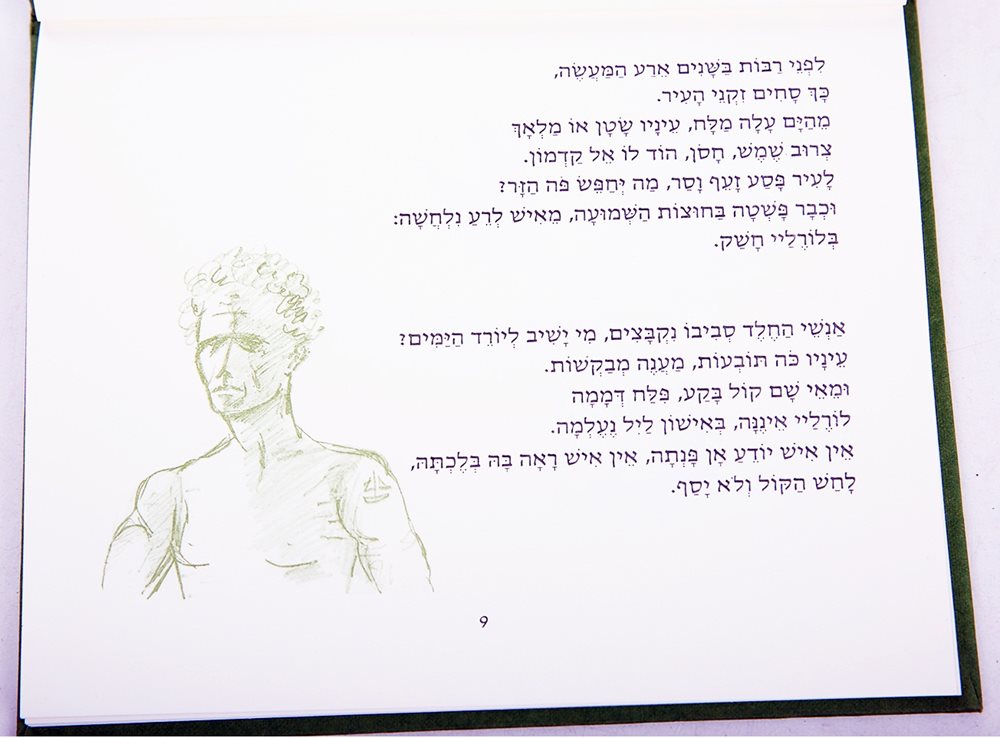 לִפְנֵי רַבּוֹת בַּשָּׁנִים אֵרַע הַמַּעֲשֶׂה,
כָּךְ סָחִים זִקְנֵי הָעִיר.
מֵהַיָּם עָלָה מַלָּח, עֵינָיו שָׂטָן אוֹ מַלְאָךְ
צְרוּב שֶׁמֶשׁ, חָסֹן, הוֹד לוֹ אֵל קַדְמוֹן.
לָעִיר פָּסַע זָעֵף וָסַר, מַה יְּחַפֵּשׂ פֹּה הַזָּר?
וּכְבָר פָּשְׁטָה בַּחוּצוֹת הַשְּׁמוּעָה, מֵאִישׁ לְרֵעַ נִלְחֲשָׁה:
בְּלוֹרֶלַיי חָשַׁק.
אַנְשֵׁי הַחֶלֶד סְבִיבוֹ נִקְבָּצִים, מִי יָשִׁיב לְיוֹרֵד הַיַּמִּים?
עֵינָיו כֹּה תּוֹבְעוֹת, מַעֲנֶה מְבַקְשׁוֹת.
וּמֵאֵי שָׁם קוֹל בָּקַע, פִּלַּח דְּמָמָה
לוֹרֶלַיי אֵינֶנָּה, בְּאִישׁוֹן לַיִל נֶעֶלְמָה.
אֵין אִישׁ יוֹדֵעַ אָן פָּנְתָה, אֵין אִישׁ רָאָה בָּהּ בְּלֶכְתָּהּ,
לָחַשׁ הַקּוֹל וְלֹא יָסַף.
9